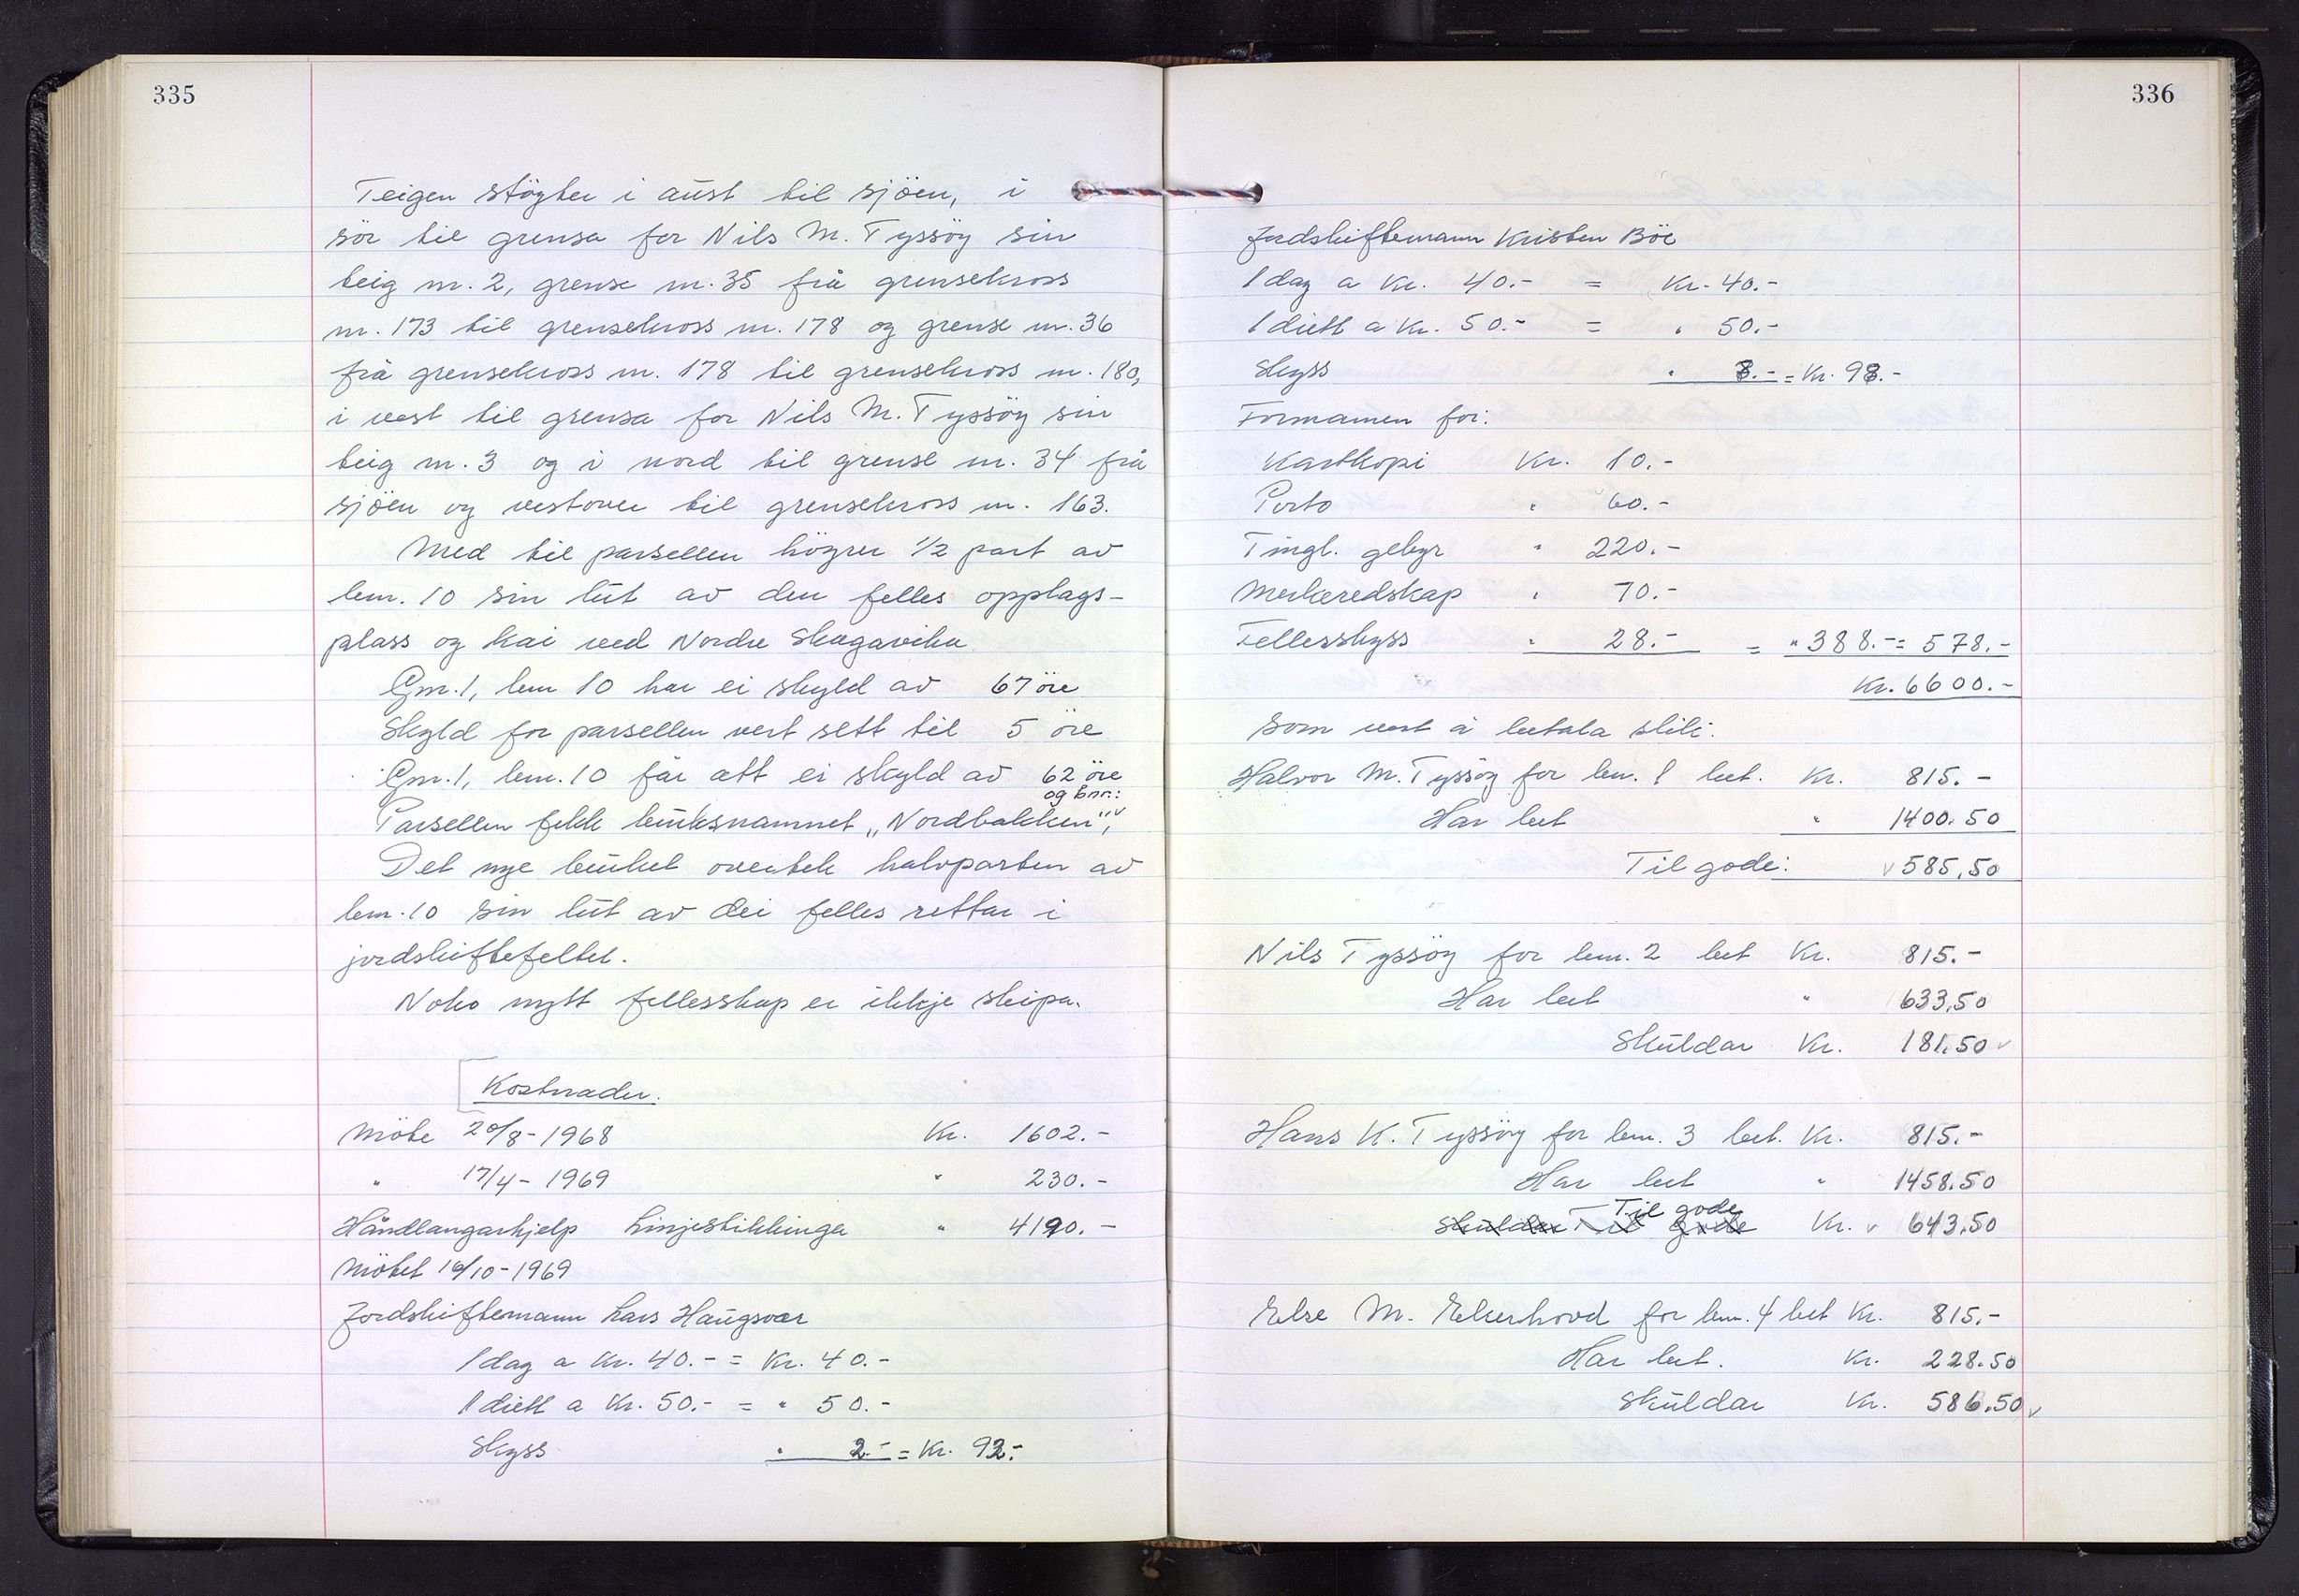 335
Teigen støyter i aust til sjöen, i
sör til grensa for Nils M. Tyssöy sin
teig nr. 2, grense nr. 35 frå grensekross
nr. 173 til grensekross nr. 178 og grense nr. 36
frå grensekross nr. 178 til grensekross nr. 180,
i vest til grensa for Nils M. Tyssöy sin
teig nr. 3 og i nord til grense nr. 34 frå
sjöen og vestover til grensekross nr. 163.
Med til parsellen högrer 1/2 part av
bnr. 10 sin lut av den felles opplags-
plass og kai ved Nordre Skagavika
Gnr. 1, bnr 10 har ei skyld av 67 öre
Skyld for parsellen vert sett til 5 öre
Gnr. 1, bnr. 10 får att ei skyld av 62 öre
og bnr.:
Parsellen fekk bruksnamnet „Nordbakken",
Det nye bruket overtek halvparten av
bnr. 10 sin lut av dei felles rettar i
jordskiftefeltet.
Noko nytt fellesskap er ikkje skipa.
Kostnader.
Möte 20/8-1968 Kr. 1602.-
" 17/4-1969 " 230.-
Håndlangarhjelp Linjestikkinga " 4190.-
Mötet 16/10-1969
Jordskiftemann Lars Haugsvær
1 dag a Kr. 40.- = Kr. 40.-
1 diett a Kr. 50.- = " 50.-
Skyss " 2.- = Kr. 92.-
336
Jordskiftemann Kristen Böe
1 dag a Kr. 40.- = Kr. 40.-
1 diett a Kr. 50.- = " 50.-
Skyss " 8.- = Kr. 98.-
Formannen for:
Kartkopi Kr. 10.-
Porto " 60.-
Tingl. gebyr " 220.-
Merkeredskap " 70.-
Fellesskyss " 28.- = " 388.- = 578.-
Kr. 6600.-
Som vert å betala slik:
Halvor M. Tyssöy for bnr. 1 bet. Kr. 815.-
Har bet " 1400.50
Til gode: 585,50
Nils Tyssöy for bnr. 2 bet Kr. 815.-
Har bet " 633,50
Skuldar Kr. 181,50
Hans K. Tyssöy for bnr. 3 bet. Kr. 815.-
Har bet " 1458.50
Til gode
Skuldar Til gode Kr. 643,50
Else M. Ekerhovd for bnr. 4 bet Kr. 815.-
Har bet. Kr. 228.50
Skuldar Kr. 586.50